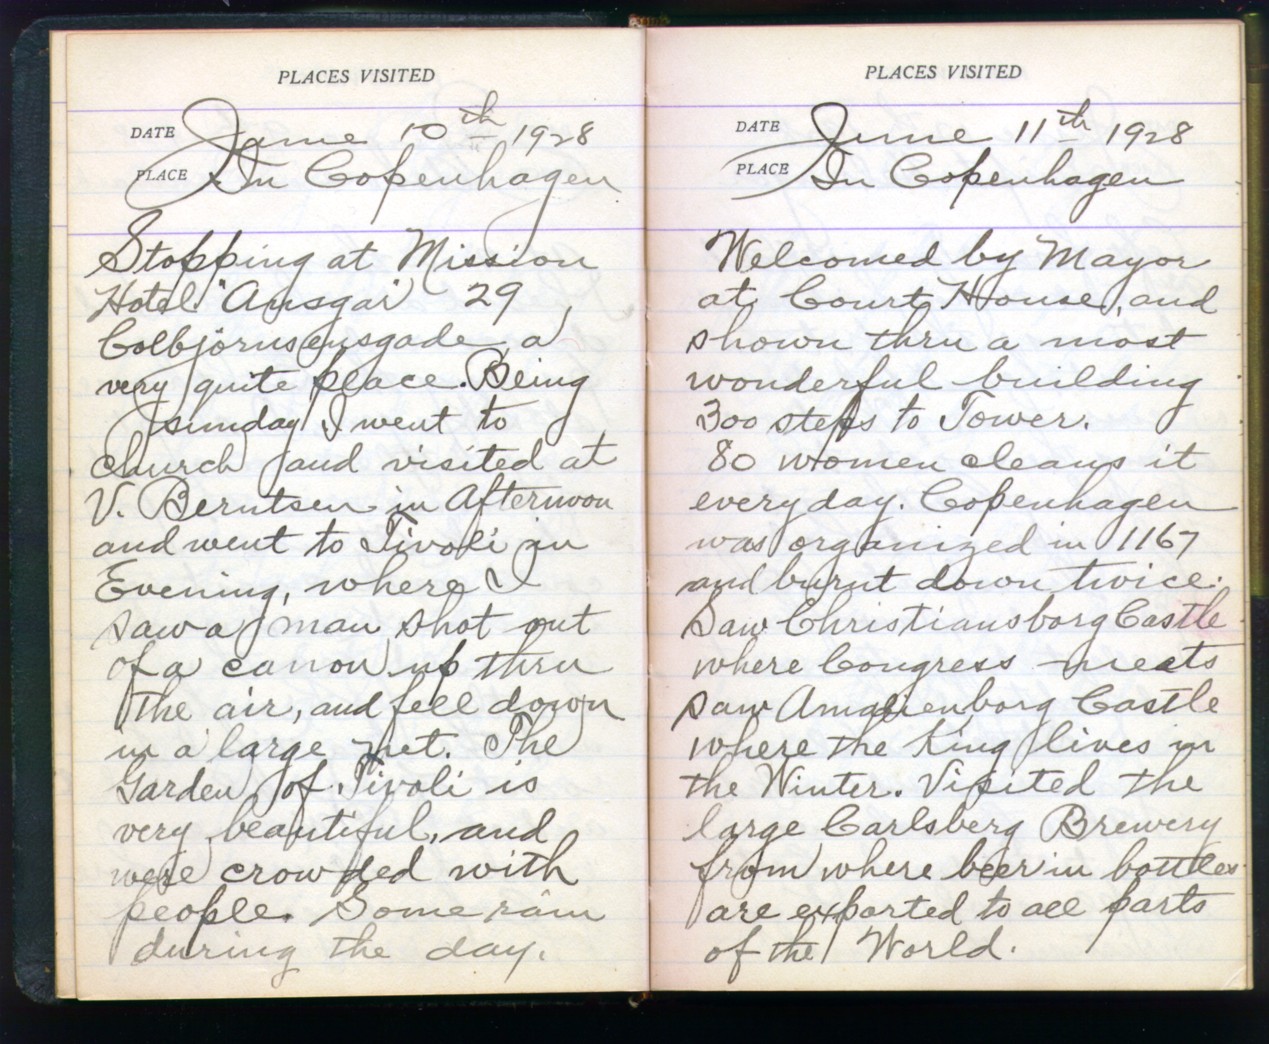 PLACES VISITED
DATE June 10th 1928
PLACE In Copenhagen
Stopping at Mission
Hotel "Ansgar" 29
Colbjörnsensgade, a
very quite place. Being
sunday I went to
church and visited at
V. Berntsen in Afternoon
and went to Tivoli in
Evening, where I
saw a man shot out
of a canon up thru
the air, and fell down
in a large net. The
Garden of Tivoli is
very beautiful, and
were crowded with
people. Some rain
during the day.
PLACES VISITED
DATE June 11th 1928
PLACE In Copenhagen
Welcomed by Mayor
at Court House, and
shown thru a most
wonderful building
300 steps to Tower.
80 women cleans it
every day. Copenhagen
was organized in 1167
and burnt down twice.
Saw Christiansborg Castle
where Congress meets
saw Amalienborg Castle
where the King lives in
the Winter. Visited the
large Carlsberg Brewery
from where beer in bottles
are exported to all parts
of the World.